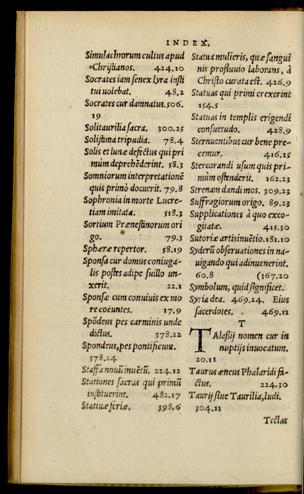 INDEX.
Simulachrorum cultus apud
Christianos. 424.10
Socrates iam senex lyra insti
tui uolebat. 48.2
Socrates cur damnatus. 506.
19
Solitaurilia sacra. 300.25
Solistima tripudia. 78.4
Solis et lunæ defectus qui pri
mùm deprehēderint. 58.2
Somniorum interpretationē
quis primò docuerit. 79.8
Sophronia in morte Lucre-
tiam imitata. 518.3
Sortium Prænestinorum ori
go. 79.2
Sphæræ repertor. 58.19
Sponsa cur domus coniuga-
lis postes adipe suillo un-
xerit. 22.1
Sponsæ cum conuiuis ex mo
re coëuntes. 17.9
Spōdeus pes carminis unde
dictus. 378.22
Spondeus, pes pontificum.
378.24
Staffa nouū inuētū. 224.12
Stationes sacras qui primū
instituerint. 482.17
Statuæ feriæ. 398.6
Statua mulieris, quæ sangui
nis profluuio laborans, à
Christo curata est. 426.9
Statuas qui primi erexerint
154.5
Statuas in templis erigendi
consuetudo. 428.9
Sternuentibus cur bene pre-
cemur. 416.25
Stercorandi usum quis pri-
mùm ostenderit. 162.23
Strenam dandi mos. 309.23
Suffragiorum origo. 89.23
Supplicationes à quo exco-
gitatæ. 415.30
Sutoriæ artis inuētio. 181.10
Syderū obseruationes in na-
uigando qui adinuenerint.
60.8 (367.20
Symbolum, quid significet.
Syria dea. 469.24. Eius
sacerdotes. 469.11
T
Talassij nomen cur in
nuptijs inuocatum.
20.11
Taurus æneus Phalaridi fa-
ctus. 224.30
Taurij siue Taurilia, ludi.
304.11
Tectas